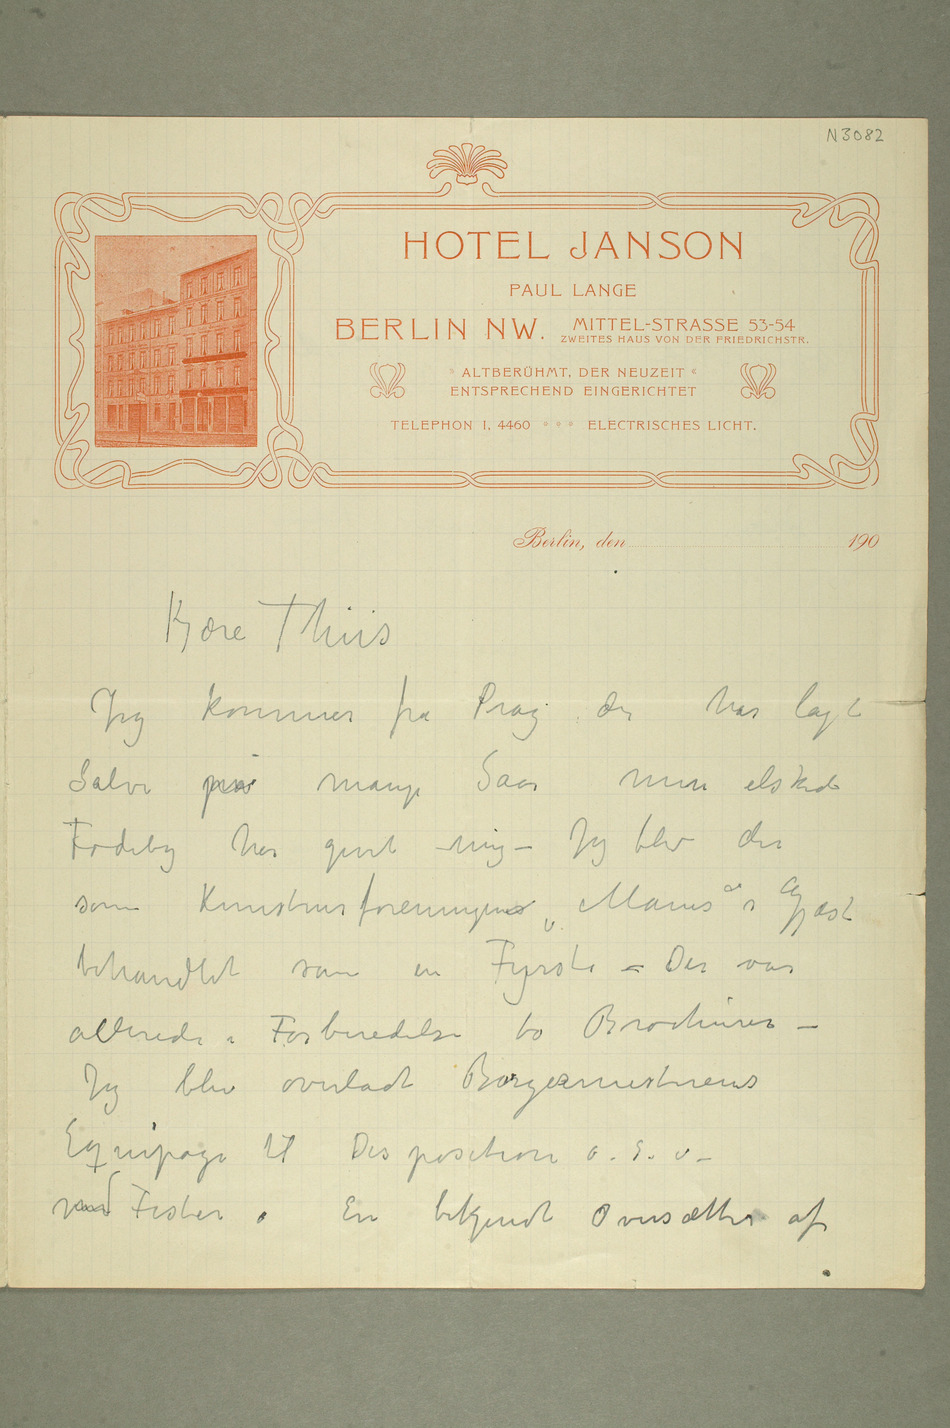 N3082
HOTEL JANSON
PAUL LANGE
BERLIN NW. MITTEL-STRASSE 53-54
ZWEITES HAUS VON DER FRIEDRICHSTR.
» ALTBERÜHMT, DER NEUZEIT «
ENTSPRECHEND EINGERICHTET
TELEPHON I, 4460 * * * ELECTRISCHES LICHT.
Berlin, den 190
Kjære Thiis
Jeg kommer fra Prag der har lagt
Salve på mange Saar min elskede
Fødeby har givet mig – Jeg blev der
som Kunstnerforeningens „Manes“s Gjæst
behandlet som en Fyrste – Der var
allerede i Forberedelse to Brochürer –
Jeg blev overladt Borgermesterens
Equipage til Disposition o. s. v –
med Fester. En bekjendt Oversætter af